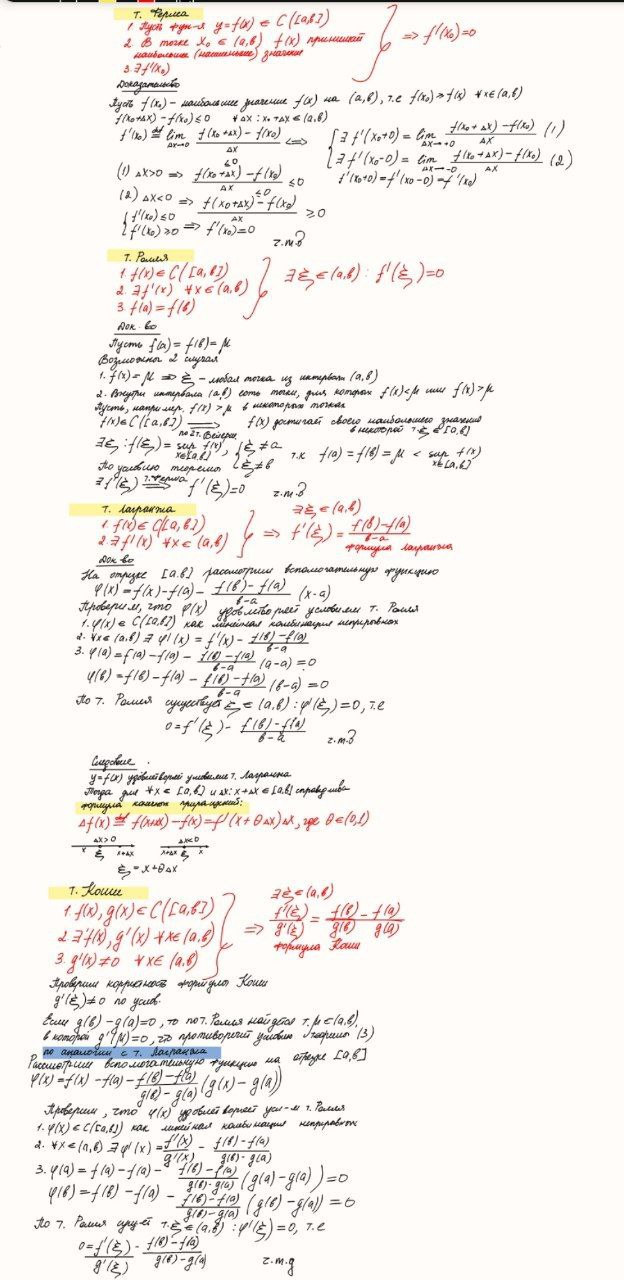 т. Ферма
1. Пусть ф-ция y=f(x) ∈ C([a,b])
2. В точке x₀ ∈ (a,b) f(x) принимает
наибольшее (наименьшее) значение
3. ∃ f'(x₀)
⇒ f'(x₀)=0
Доказательство
Пусть f(x₀) – наибольшее значение f(x) на (a,b), т.е f(x₀) ≥ f(x) ∀x∈(a,b)
f(x₀+Δx) – f(x₀) ≤ 0 ∀Δx : x₀+Δx ∈ (a,b)
f'(x₀) ≝ lim Δx→0 (f(x₀+Δx) – f(x₀))/Δx ⇔ { ∃ f'(x₀+0) = lim Δx→+0 (f(x₀+Δx) – f(x₀))/Δx (1)
∃ f'(x₀-0) = lim Δx→-0 (f(x₀+Δx) – f(x₀))/Δx (2)
f'(x₀+0) = f'(x₀-0) = f'(x₀)
(1) Δx>0 ⇒ (f(x₀+Δx) – f(x₀))/Δx ≤ 0
≤0
(2) Δx<0 ⇒ (f(x₀+Δx) – f(x₀))/Δx ≥ 0
≤0
{ f'(x₀) ≤ 0
f'(x₀) ≥ 0 ⇒ f'(x₀)=0
ч.т.д
т. Ролля
1. f(x) ∈ C([a,b])
2. ∃ f'(x) ∀x ∈ (a,b)
3. f(a) = f(b)
∃ ξ ∈ (a,b) : f'(ξ)=0
Док-во
Пусть f(a) = f(b) = μ
Возможны 2 случая
1. f(x) = μ ⇒ ξ – любая точка из интервала (a,b)
2. Внутри интервала (a,b) есть точки, для которых f(x)<μ или f(x)>μ
Пусть, например, f(x) > μ в некоторых точках
f(x) ∈ C([a,b]) ⇒ f(x) достигает своего наибольшего значения
по 2т. Вейерш. в некоторой т. ξ ∈ [a,b]
∃ξ : f(ξ) = sup x∈[a,b] f(x), { ξ≠a
ξ≠b т.к f(a) = f(b) = μ < sup x∈[a,b] f(x)
По условию теоремы
∃ f'(ξ) т.Ферма ⇒ f'(ξ)=0
ч.т.д
т. Лагранжа
1. f(x) ∈ C([a,b])
2. ∃ f'(x) ∀x ∈ (a,b)
∃ ξ ∈ (a,b)
⇒ f'(ξ) = (f(b) – f(a))/(b–a)
формула Лагранжа
Док-во
На отрезке [a,b] рассмотрим вспомогательную функцию
φ(x) = f(x) – f(a) – (f(b) – f(a))/(b–a) (x–a)
Проверим, что φ(x) удовлетворяет условиям т. Ролля
1. φ(x) ∈ C([a,b]) как линейная комбинация непрерывных
2. ∀x∈(a,b) ∃ φ'(x) = f'(x) – (f(b) – f(a))/(b–a)
3. φ(a) = f(a) – f(a) – (f(b) – f(a))/(b–a) (a–a) = 0
φ(b) = f(b) – f(a) – (f(b) – f(a))/(b–a) (b–a) = 0
По т. Ролля существует ξ ∈ (a,b) : φ'(ξ) = 0, т.е
0 = f'(ξ) – (f(b) – f(a))/(b–a)
ч.т.д
Следствие.
y=f(x) удовлетворяет условиям т. Лагранжа
Тогда для ∀x ∈ [a,b] и Δx: x+Δx ∈ [a,b] справедлива
формула конечных приращений:
Δf(x) ≝ f(x+Δx) – f(x) = f'(x+θΔx)Δx, где θ∈(0,1)
Δx>0 Δx<0
x ξ x+Δx x+Δx ξ x
ξ = x+θΔx
т. Коши
1. f(x), g(x) ∈ C([a,b])
2. ∃ f'(x), g'(x) ∀x∈(a,b)
3. g'(x)≠0 ∀x∈(a,b)
∃ ξ ∈ (a,b)
⇒ f'(ξ)/g'(ξ) = (f(b) – f(a))/(g(b) g(a))
формула Коши
Проверим корректность формулы Коши
g'(ξ)≠0 по услов.
Если g(b) – g(a)=0, то по т. Ролля найдется т. μ∈(a,b),
в которой g'(μ)=0, что противоречит условию теоремы (3)
по аналогии с т. Лагранжа
Рассмотрим вспомогательную функцию на отрезке [a,b]
φ(x) = f(x) – f(a) – (f(b) – f(a))/(g(b) – g(a)) (g(x) – g(a))
Проверим, что φ(x) удовлетворяет усл-м т. Ролля
1. φ(x) ∈ C([a,b]) как линейная комбинация непрерывных
2. ∀x∈(a,b) ∃ φ'(x) = f'(x)/g'(x) – (f(b) – f(a))/(g(b) – g(a))
3. φ(a) = f(a) – f(a) – (f(b) – f(a))/(g(b) – g(a)) (g(a) – g(a)) = 0
φ(b) = f(b) – f(a) – (f(b) – f(a))/(g(b) – g(a)) (g(b) – g(a)) = 0
По т. Ролля сущет т. ξ ∈ (a,b) : φ'(ξ) = 0, т.е
0 = f'(ξ)/g'(ξ) – (f(b) – f(a))/(g(b) – g(a))
ч.т.д